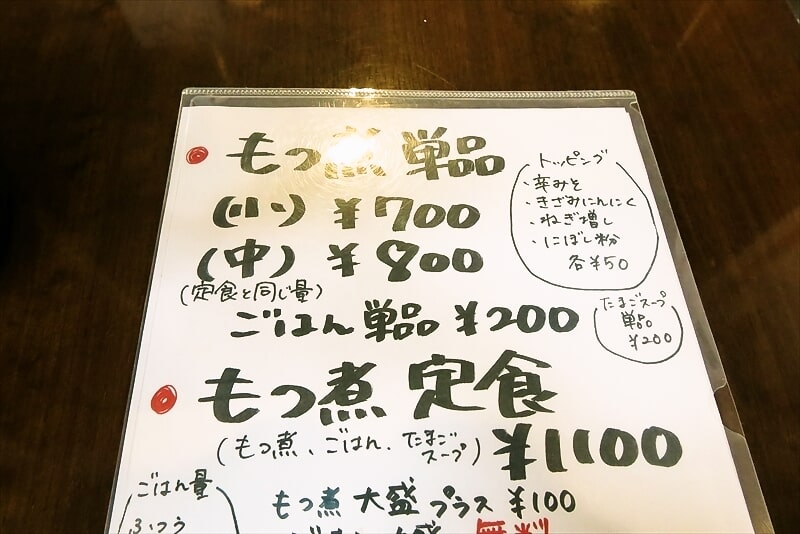 もつ煮 単品
(小) ¥700
(中) ¥800
(定食と同じ量)
ごはん単品 ¥200
トッピング
・辛みそ
・きざみにんにく
・ねぎ増し
・にぼし粉
各¥50
たまごスープ
単品
¥200
もつ煮 定食
(もつ煮、ごはん、たまごスープ) ¥1100
もつ煮 大盛 プラス ¥100
無料
ごはん量
ふつう